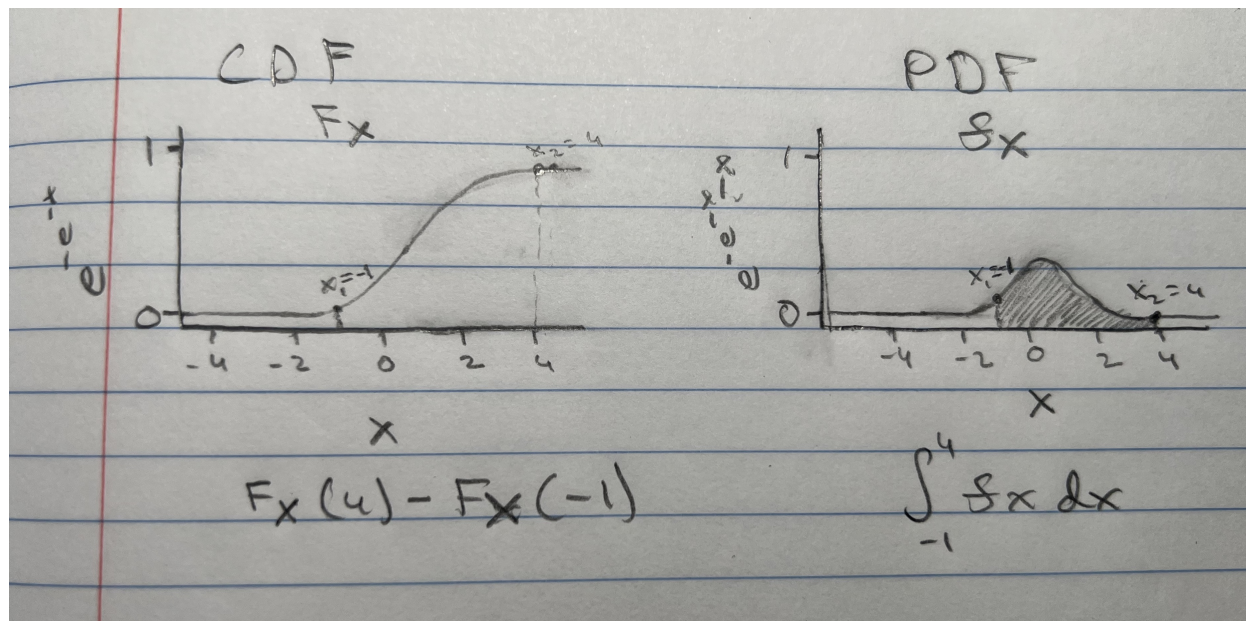 CDF
F_X
1
x₂=4
x₁=-1
0
-4 -2 0 2 4
X
F_X(4) - F_X(-1)
PDF
f_X
1
x₁=-1
x₂=4
0
-4 -2 0 2 4
X
∫₋₁⁴ f_X dx